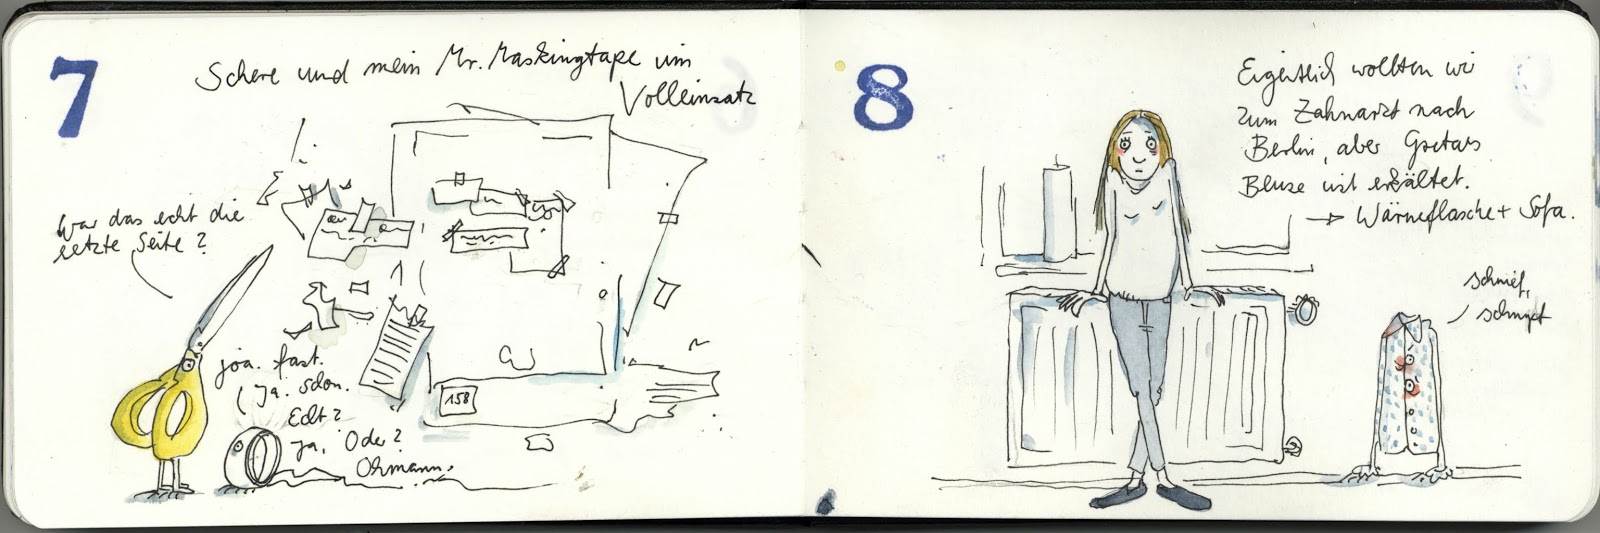 7
Schere und mein Mr. Maskingtape im
Volleinsatz
War das echt die
letzte Seite?
joa. fast.
Ja. schon.
Echt?
ja, Oder?
Ohmann.
158
8
Eigentlich wollten wir
zum Zahnarzt nach
Berlin, aber Gretas
Bluse ist erkältet.
→ Wärmflasche + Sofa.
schnief,
schnief